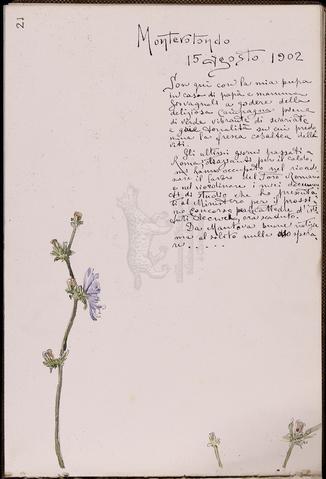 21
Monterotondo
15 agosto 1902
Son qui con la mia pupa
in casa di papà e mamma
a godere della
deliziosa campagna piena
di verde vibrante di svariate
e gaie tonalità su cui predo
mina la fresca cobaltea delle
viti.
Gli ultimi giorni passati a
Roma, per il caldo,
mi hanno occupato nel riordi
nare il corso del Foro Romano
e nel riordinare i miei
di studio che ho presenta
ti al Ministero per il prossi
mo concorso per cattedre d'isti
tuti tecnici, ora scaduto.
Da Mantova buone notizie
ma al solito nulla da spera
re . . . . .